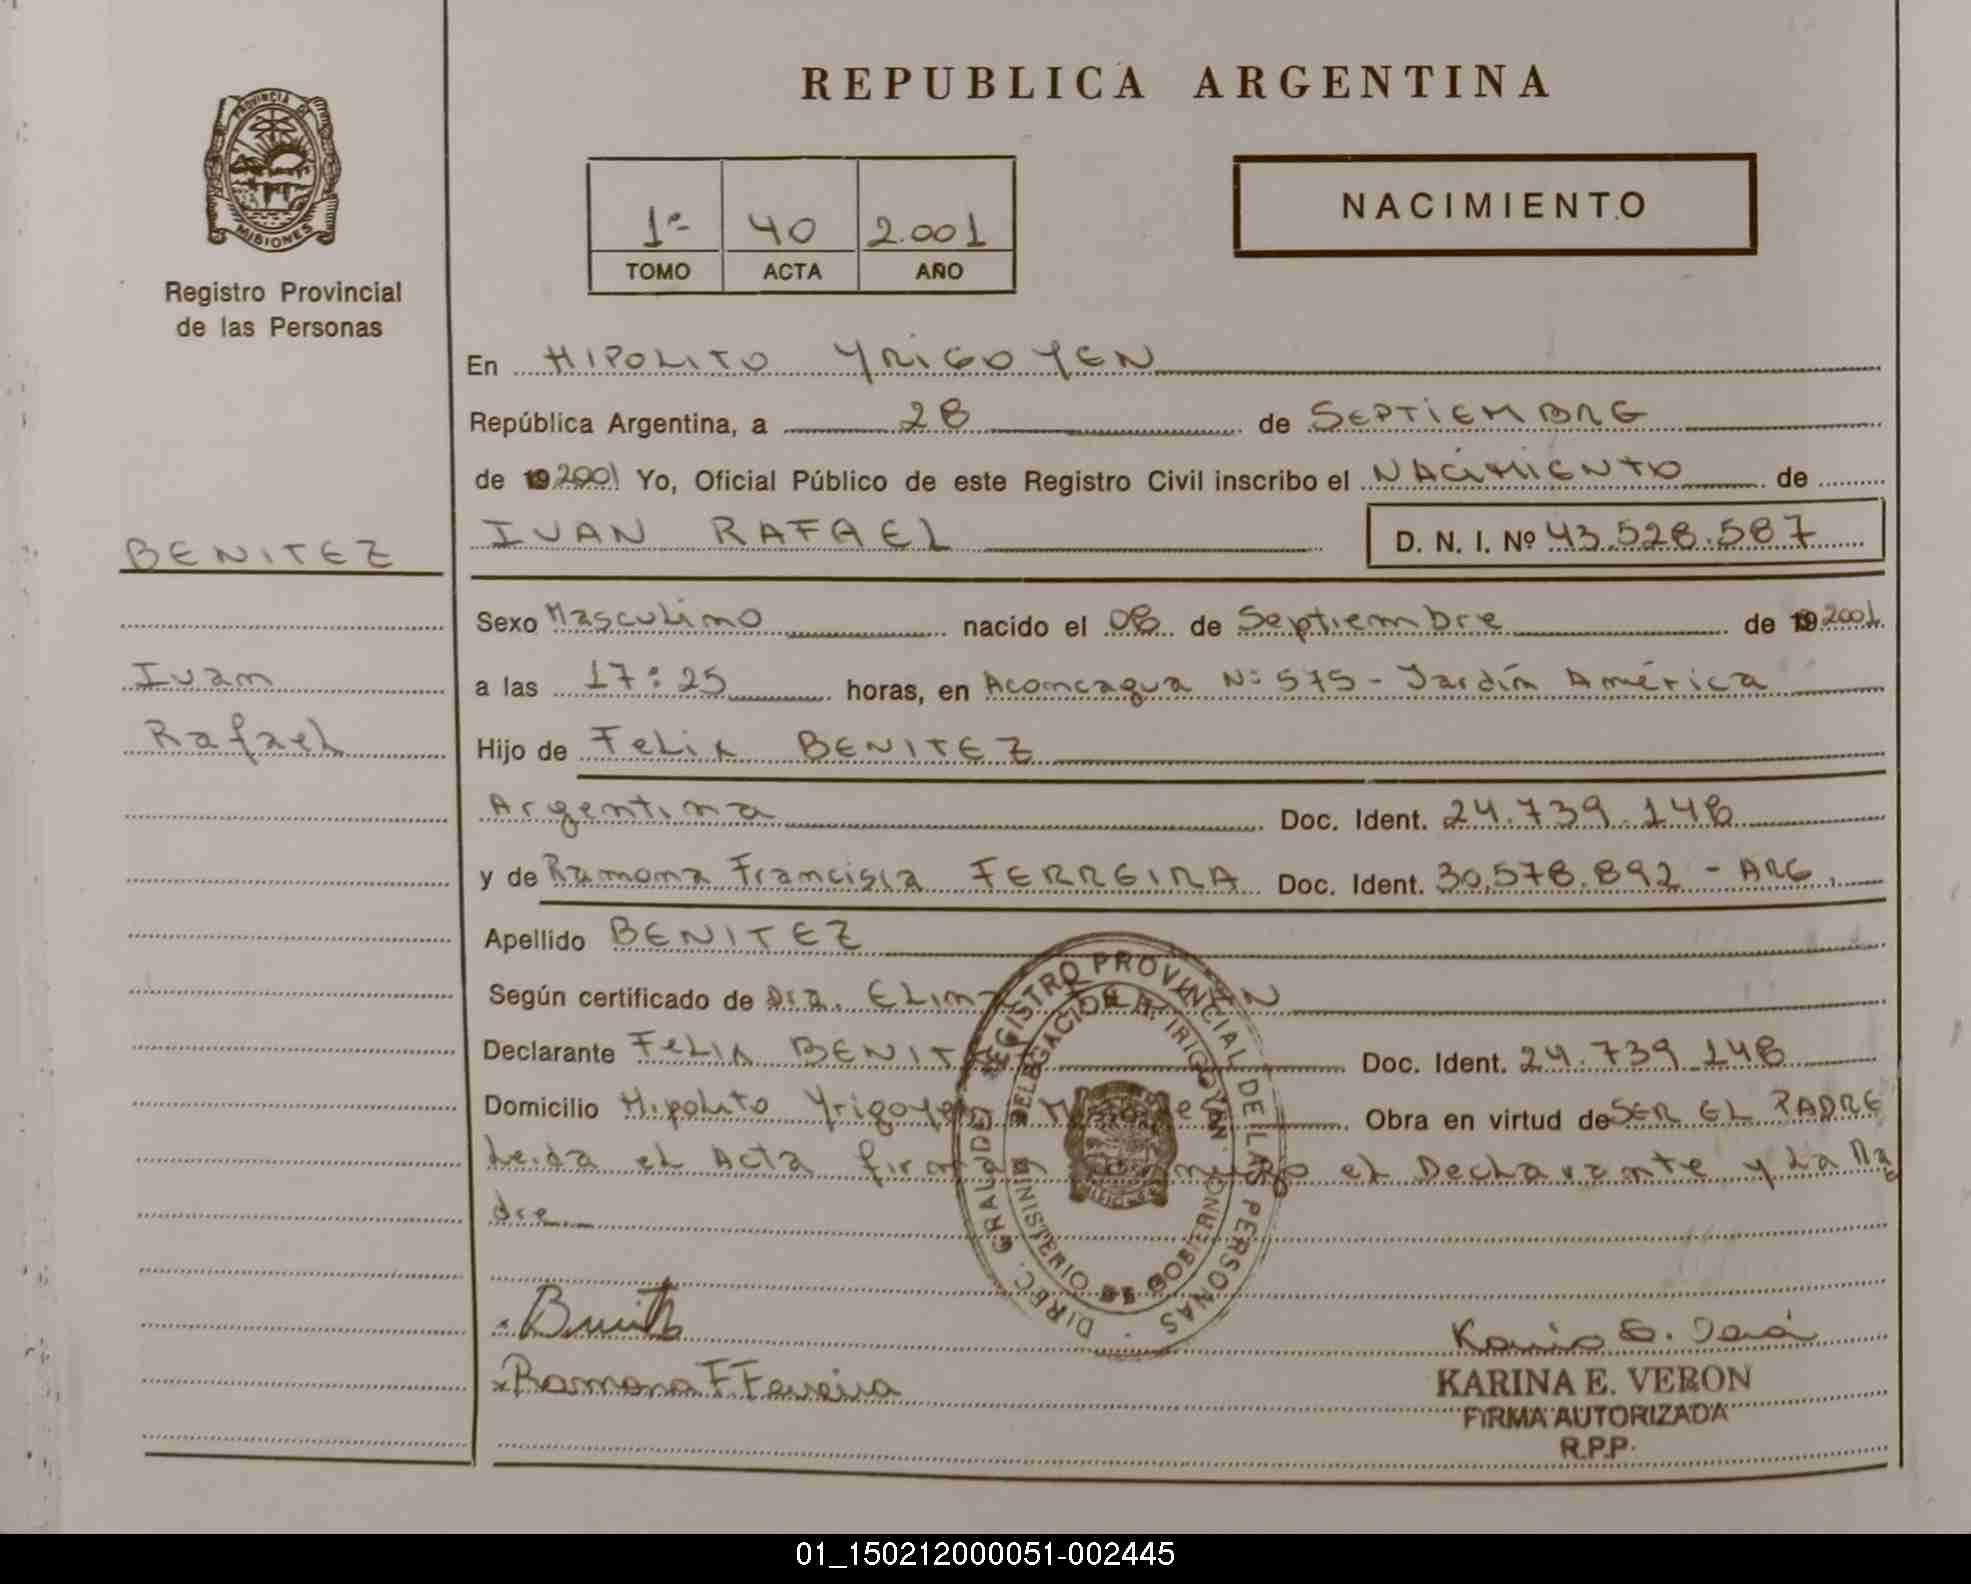 REPUBLICA ARGENTINA
PROVINCIA DE
MISIONES
Registro Provincial
de las Personas
1ª 40 2.001
TOMO ACTA AÑO
NACIMIENTO
En HIPOLITO YRIGOYEN
República Argentina, a 28 de SEPTIEMBRE
de 192001 Yo, Oficial Público de este Registro Civil inscribo el NACIMIENTO de
BENITEZ
IVAN RAFAEL D. N. I. Nº 43.528.587
Sexo Masculino nacido el 08 de Septiembre de 19 2001
Ivan
a las 17:25 horas, en Aconcagua Nº 575 - Jardín América
Rafael
Hijo de Felix BENITEZ
Argentina Doc. Ident. 24.739.148
y de Ramona Francisca FERREIRA Doc. Ident. 30.578.892 - ARG.
Apellido BENITEZ
Según certificado de Dra.
Declarante Felix BENIT Doc. Ident. 24.739.148
Domicilio Hipolito Yrigoyen Misiones. Obra en virtud de SER EL PADRE
Leida el Acta firman el Declarante y La Ma
dre
REGISTRO PROVINCIAL DE LAS PERSONAS
DIREC. GRAL. DEL
DELEGACION H. IRIGOYAN
MINISTERIO DE GOBIERNO
MISIONES
Ramona F Ferreira
KARINA E. VERON
FIRMA AUTORIZADA
R.P.P.
01_150212000051-002445